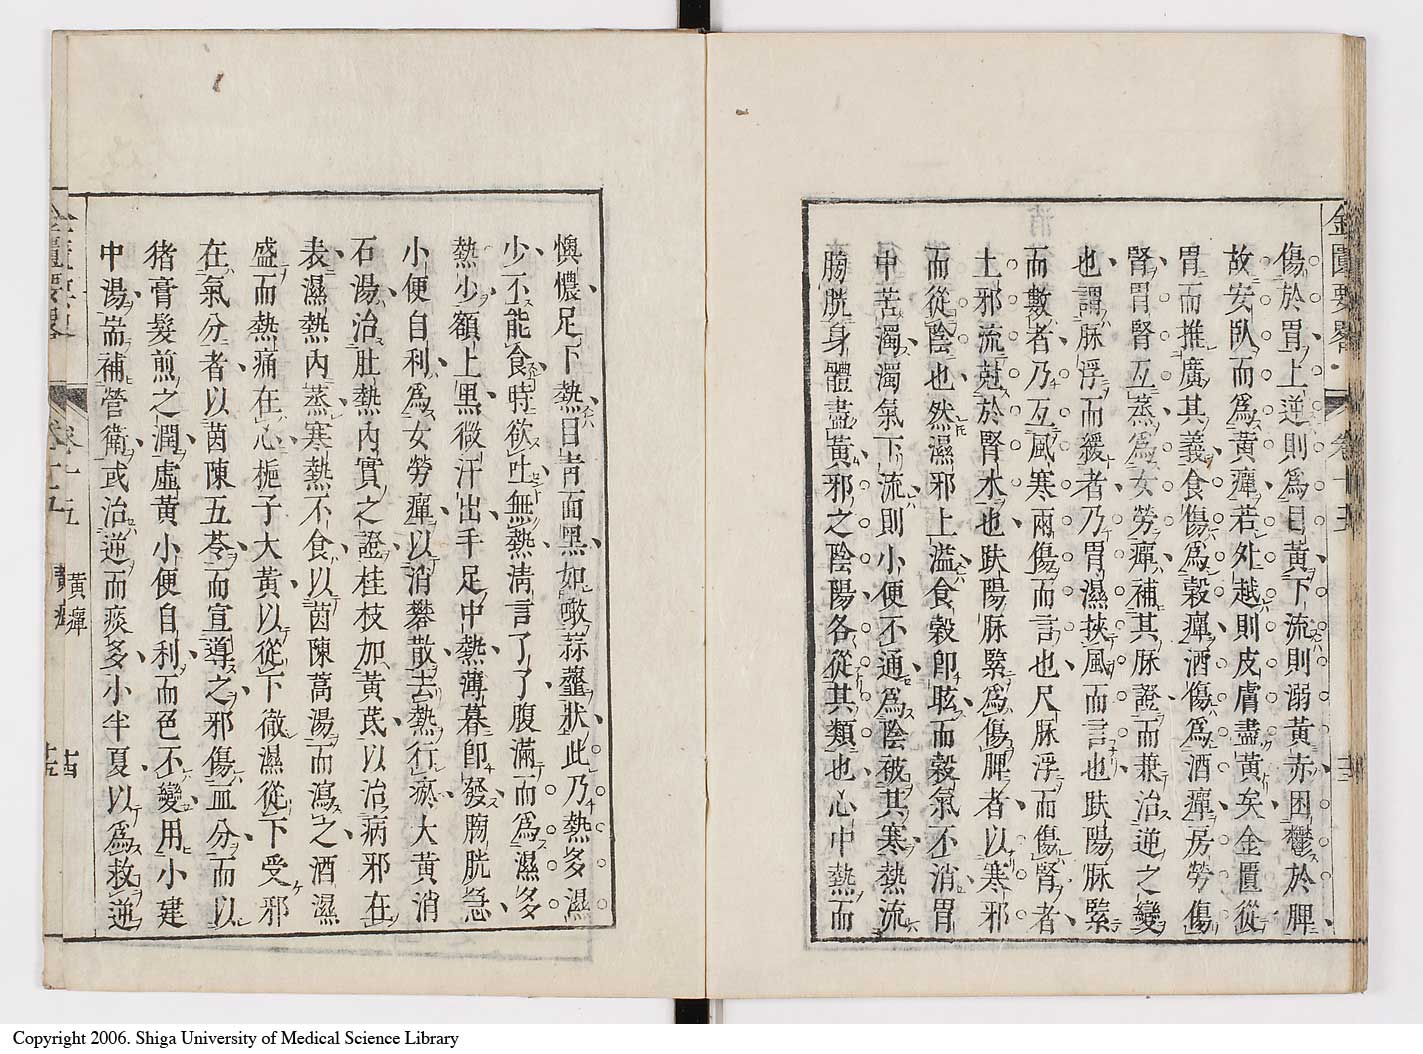 金匱要畧 卷十五 十三
傷於胃上逆則爲目黃下流則溺黃赤困鬱於脾
故安臥而爲黃癉若外越則皮膚盡黃矣金匱從
胃而推廣其義食傷爲穀癉酒傷爲酒癉房勞傷
腎胃腎互蒸爲女勞癉補其脉證而兼治逆之變
也謂脉浮而緩者乃胃濕挾風而言也趺陽脉緊
而數者乃互風寒兩傷而言也尺脉浮而傷腎者
土邪流尅於腎水也趺陽脉緊爲傷脾者以寒邪
而從陰也然濕邪上溢食穀即眩而穀氣不消胃
中苦濁濁氣下流則小便不通爲陰被其寒熱流
膀胱身體盡黃邪之陰陽各從其類也心中熱而
懊憹足下熱目青面黑如噉蒜虀狀此乃熱多濕
少不能食時欲吐無熱淸言了了腹滿而爲濕多
熱少額上黑微汗出手足中熱薄暮即發膀胱急
小便自利爲女勞癉以消礬散去熱行瘀大黃消
石湯治肚熱內實之證桂枝加黃茋以治病邪在
表濕熱內蒸寒熱不食以茵陳蒿湯而瀉之酒濕
盛而熱痛在心梔子大黃以從下徹濕從下受邪
在氣分者以茵陳五苓而宣導之邪傷血分而以
猪膏髮煎之潤虛黃小便自利而色不變用小建
中湯耑補營衛或治逆而痰多小半夏以爲救逆
卷十五 黃癉 十四